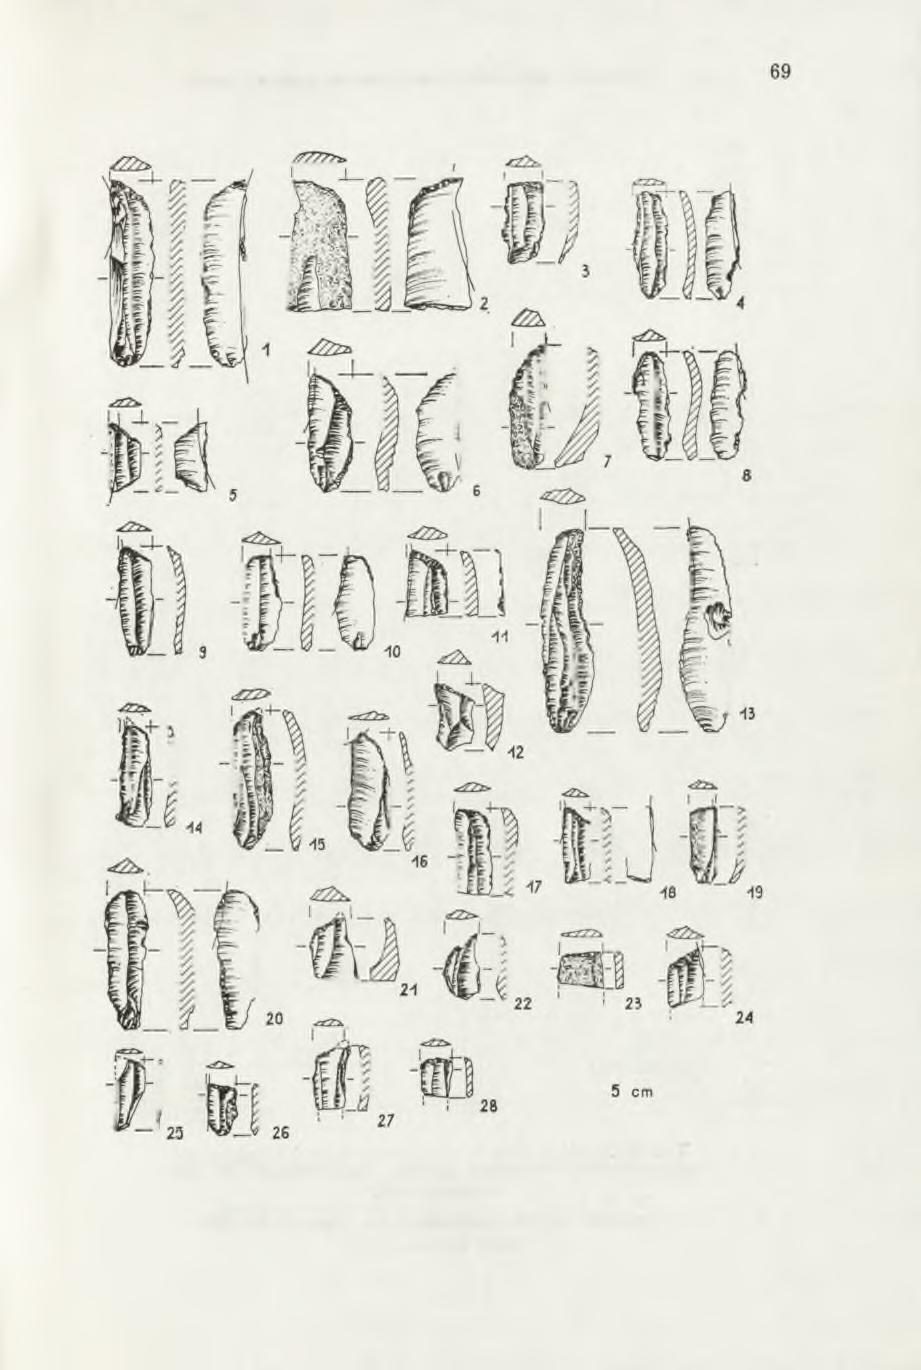 69
1
2
3
4
5
6
7
8
9
10
11
12
13
14
15
16
17
18
19
20
21
22
23
24
25
26
27
28
5 cm